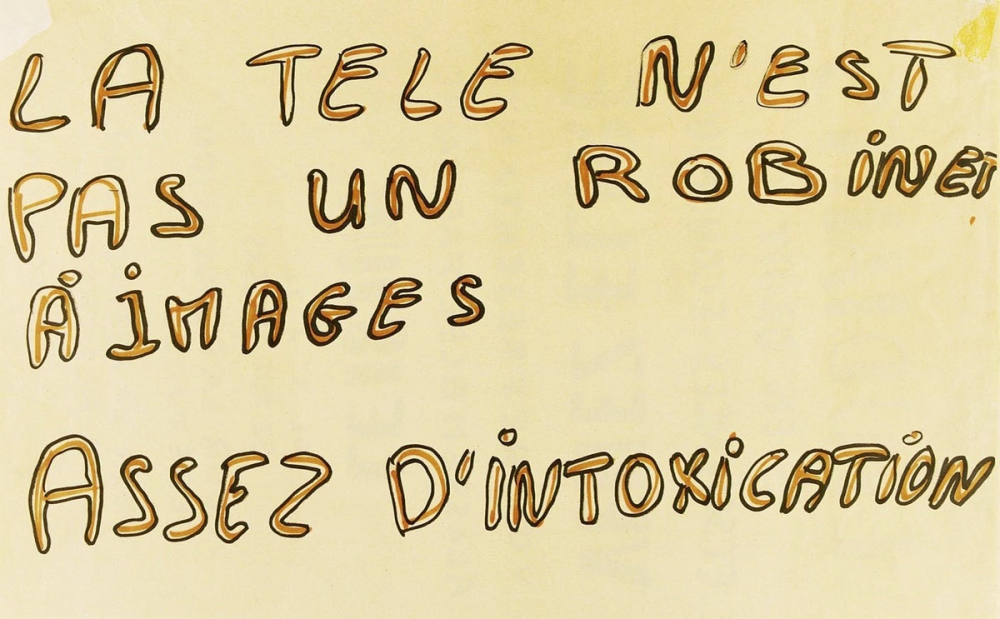 LA TELE N'EST
PAS UN ROBINET
À iMAGES
ASSEZ D'iNTOXiCATiON